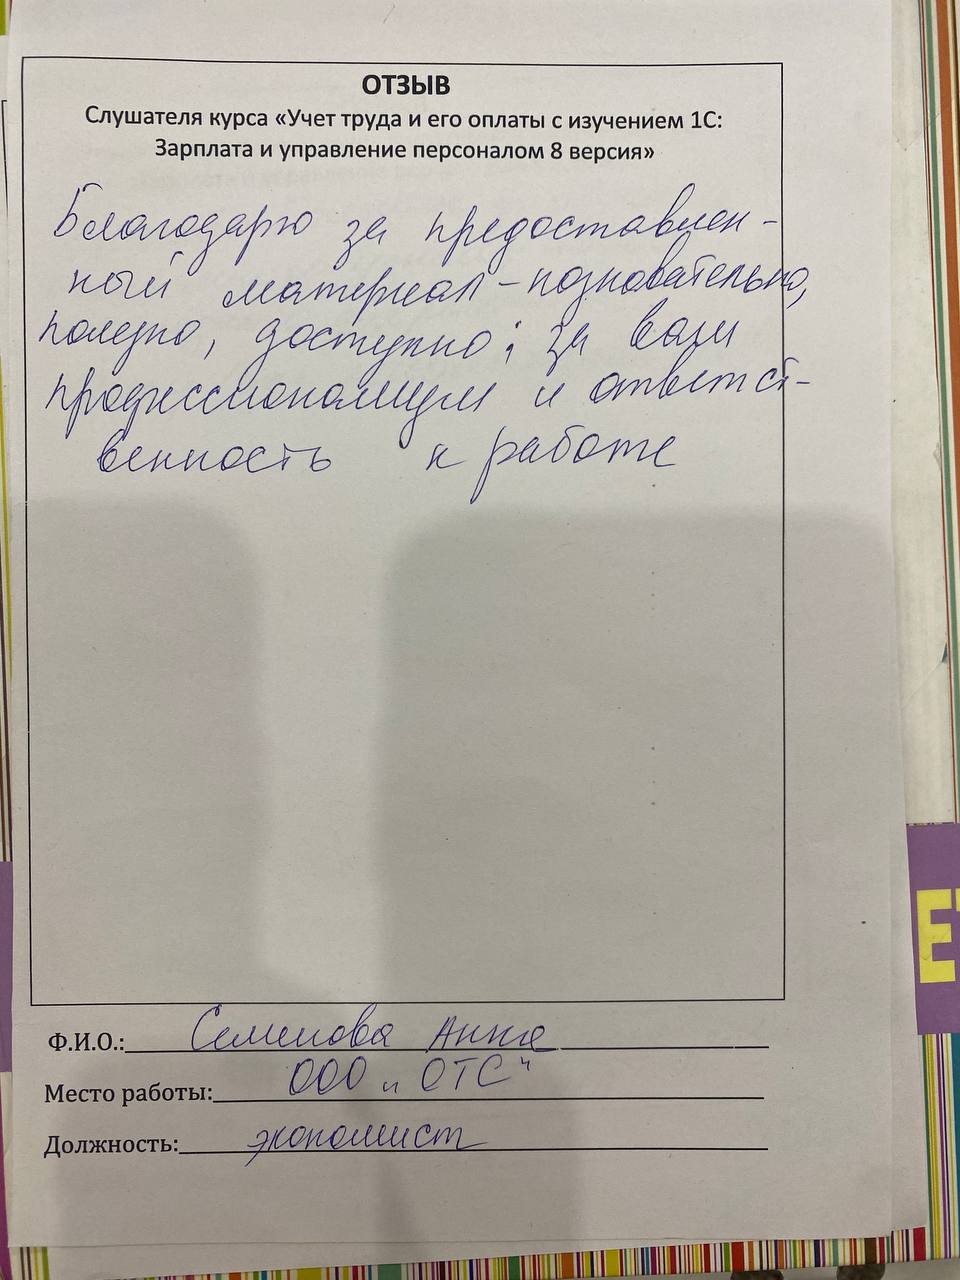 ОТЗЫВ
Слушателя курса «Учет труда и его оплаты с изучением 1С:
Зарплата и управление персоналом 8 версия»
Благодарю за предоставлен-
ный материал - познавательно,
полезно, доступно; за ваш
профессионализм и ответст-
венность к работе
Ф.И.О.: Семенова Анна
Место работы: ООО „ОТС"
Должность: экономист